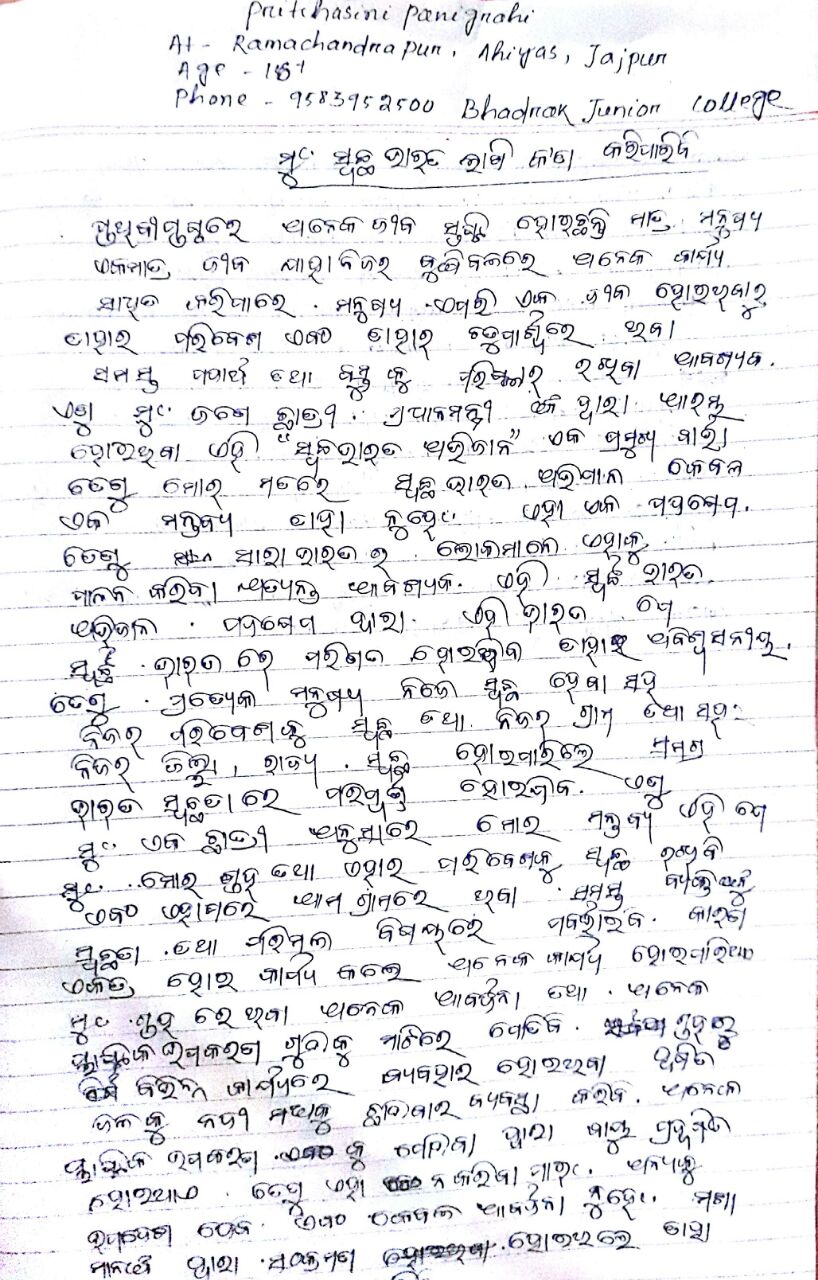 Pritchasini Panigrahi
At - Ramachandrapur, Ahiyas, Jajpur
Age -
Phone - 9583952500 Bhadrak Junior College
ମୁଂ ସ୍ୱଚ୍ଛ ଭାରତ ଲାଗି କଣ କରିପାରିବି
ପୃଥିବୀପୃଷ୍ଠରେ ଅନେକ ଜୀବ ସୃଷ୍ଟି ହୋଇଛନ୍ତି ମାତ୍ର ମନୁଷ୍ୟ
ଏକମାତ୍ର ଜୀବ ଯାହା ନିଜର ବୁଦ୍ଧିବଳରେ ଅନେକ କାର୍ଯ୍ୟ
ସାଧିତ କରିପାରେ . ମନୁଷ୍ୟ ଏପରି ଏକ ଜୀବ ହୋଇଥିବାରୁ
ତାହାର ପରିବେଶ ଏବଂ ତାହାର ଚତୁପାର୍ଶ୍ୱରେ ଥିବା
ସମସ୍ତ ପଦାର୍ଥ ତଥା ବସ୍ତୁ କୁ ପରିଷ୍କାର ରଖିବା ଆବଶ୍ୟକ.
ଏଣୁ ମୁଂ ଜଣେ ଛାତ୍ରୀ . ପ୍ରଧାନମନ୍ତ୍ରୀ ଙ୍କ ଦ୍ୱାରା ଆରମ୍ଭ
ହୋଇଥିବା ଏହି "ସ୍ୱଚ୍ଛଭାରତ ଅଭିଜାନ" ଏକ ପ୍ରମୁଖ ବାର୍ତ୍ତା
ତେଣୁ ମୋର ମତରେ ସ୍ୱଚ୍ଛ ଭାରତ ଅଭିଯାନ କେବଳ
ଏକ ମନ୍ତବ୍ୟ ତାହା ନୁହେଂ ଏହା ଏକ ପଦକ୍ଷେପ.
ତେଣୁ ସାରା ଭାରତ ର ଲୋକମାନେ ଏହାକୁ
ପାଳନ କରିବା ଅତ୍ୟନ୍ତ ଆବଶ୍ୟକ. ଏହି ସ୍ୱଚ୍ଛ ଭାରତ
ଅଭିଜାନ . ପଦକ୍ଷେପ ଦ୍ୱାରା ଏହି ଭାରତ ଯେ
ସ୍ୱଚ୍ଛ ଭାରତ ରେ ପରିଣତ ହୋଇଯିବ ତାହା ଅବିଶ୍ୱସନୀୟ.
ତେଣୁ ପ୍ରତ୍ୟେକ ମନୁଷ୍ୟ ନିଜେ ସ୍ୱଚ୍ଛ ହେବା ସହ
ନିଜର ପରିବେଶକୁ ସ୍ୱଚ୍ଛ ତଥା ନିଜର ଗ୍ରାମ ତଥା ସହ
ନିଜର ଜିଲ୍ଲା, ରାଜ୍ୟ . ସ୍ୱଚ୍ଛ ହୋଇପାରିଲେ ସମଗ୍ର
ଭାରତ ସ୍ୱଚ୍ଛତା ରେ ପରିପୂର୍ଣ୍ଣ ହୋଇଯିବ. ଏଣୁ
ମୁଂ ଏକ ଛାତ୍ରୀ ଅନୁସାରେ ମୋର ମନ୍ତବ୍ୟ ଏହି ଯେ
ମୁଂ ମୋର ଗୃହ ତଥା ଏହାର ପରିବେଶକୁ ସ୍ୱଚ୍ଛ ରଖିବି
ଏବଂ ଏହାପରେ ଆମ ଗ୍ରାମରେ ଥିବା ସମସ୍ତ ବ୍ୟକ୍ତିଙ୍କୁ
ସ୍ୱଚ୍ଛତା ତଥା ପରିମଳ ବିଷୟରେ ପଚାରିବି. କାରଣ
ଏକତ୍ର ହୋଇ କାର୍ଯ୍ୟ କଲେ ଅନେକ କାର୍ଯ୍ୟ ହୋଇପାରିଥାଏ
ମୁଂ ଗୃହ ରେ ଥିବା ଅନେକ ଆବର୍ଜନା ତଥା . ଅନେକ
ପ୍ଲାଷ୍ଟିକ ଉପକରଣ ଗୁଡିକୁ ମାଟିରେ ପୋତିବି. ଗୃହରୁ
ବିଭିନ୍ନ କାର୍ଯ୍ୟରେ ବ୍ୟବହାର ହୋଇଥିବା ଦୂଷିତ
ଜଳ କୁ ନଦୀ ମଧ୍ୟକୁ ଛାଡିବାର ବ୍ୟବସ୍ଥା କରିବି. ଅନେକ
ପ୍ଲାଷ୍ଟିକ ଉପକରଣ କୁ ପୋଡିବା ଦ୍ୱାରା ବାୟୁ ପ୍ରଦୂଷିତ
ହୋଇଥାଏ . ତେଣୁ ଏହା ନ କରିବା ପାଇଂ . ଅନ୍ୟକୁ
ଉପଦେଶ ଦେବି. ଏବଂ କେବଳ ଆବର୍ଜନା ନୁହେଂ ମଶା
ମାନଙ୍କ ଦ୍ୱାରା ସଂକ୍ରମଣ ହୋଇଥିଲେ ତାହା